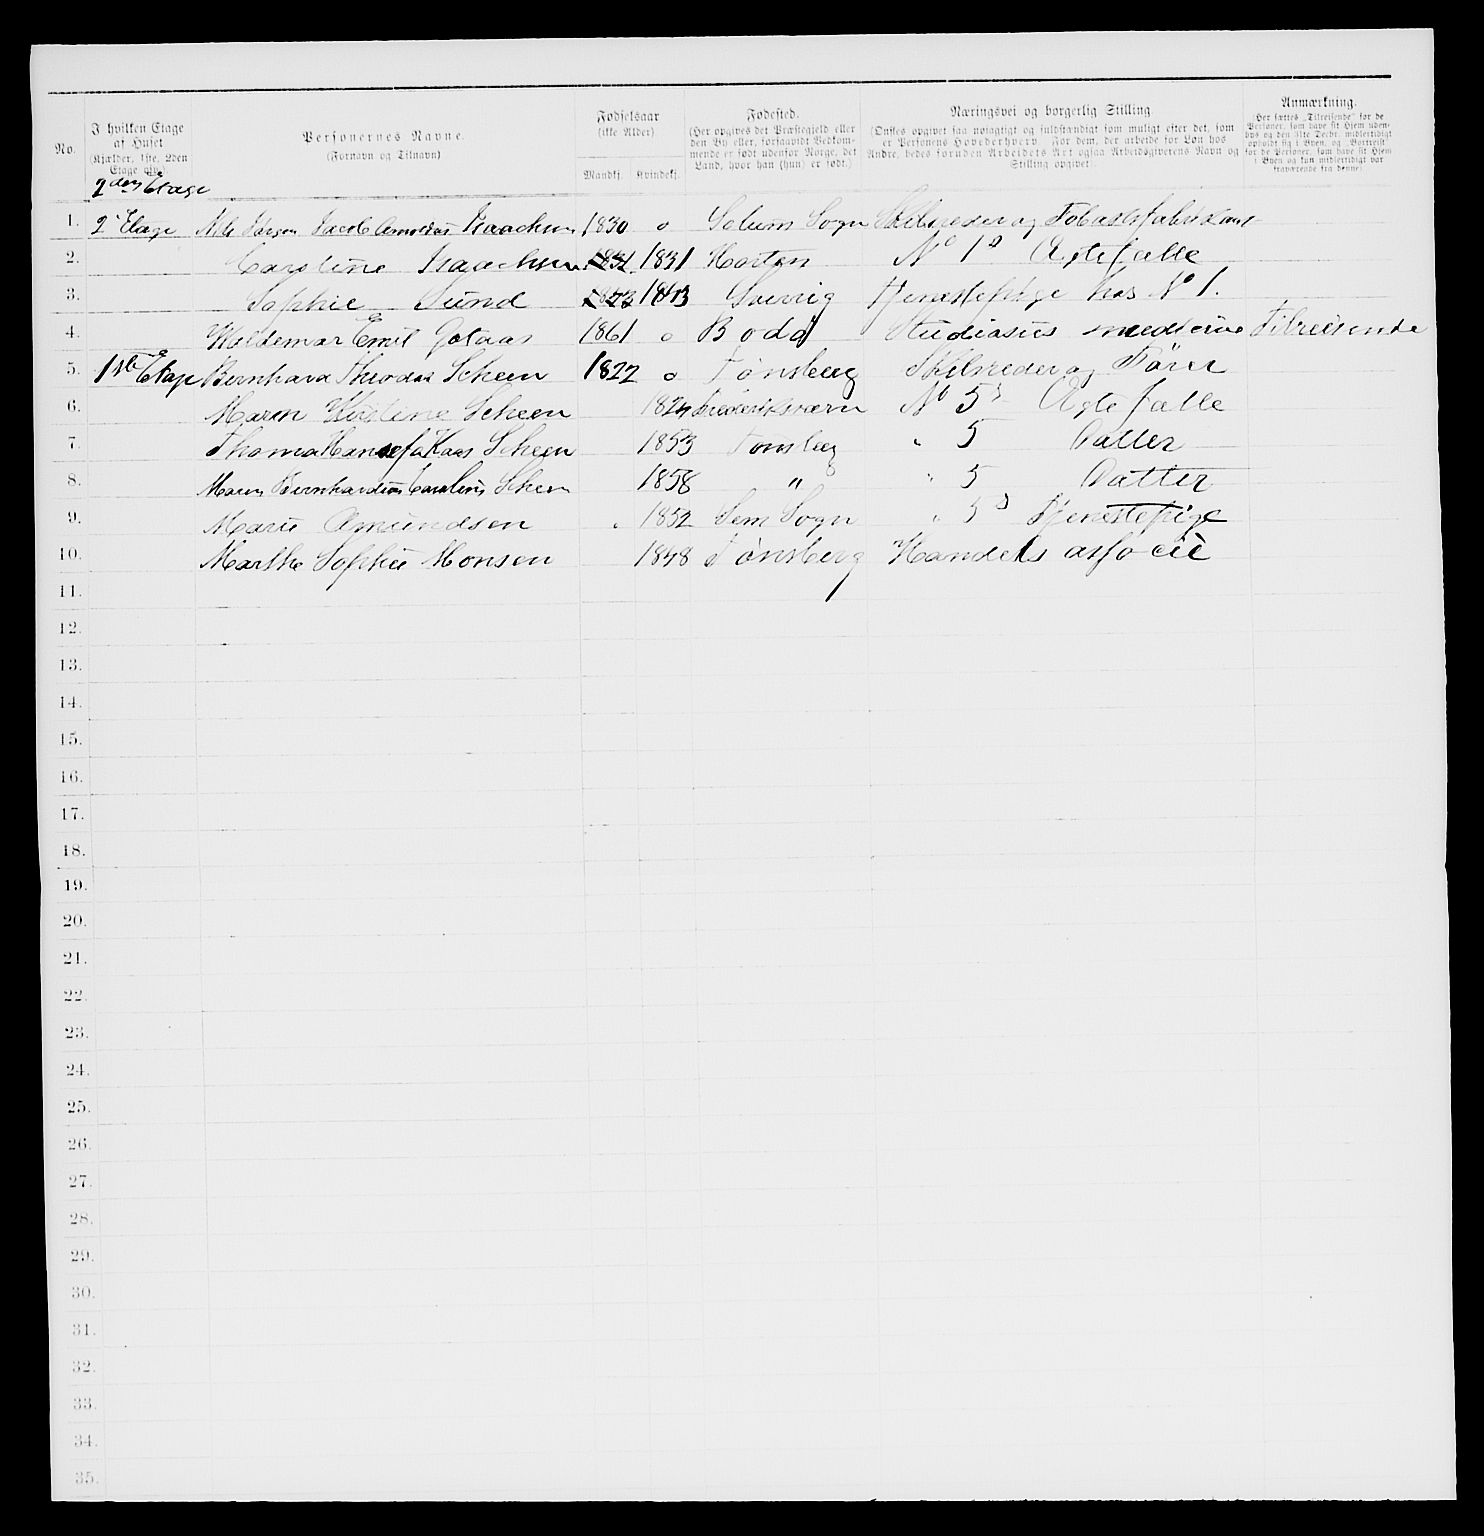 No.
I hvilken Etage af Huset (Kjælder, 1ste, 2den Etage osv.)
Personernes Navne. (Fornavn og Tilnavn)
Fødselsaar (ikke Alder) Mandkj. Kvindekj.
Fødested. (Her opgives det Præstegjeld eller den By eller, forsaavidt Vedkommende er født udenfor Norge, det Land, hvor han (hun) er født.)
Næringsvei og borgerlig Stilling. (Ønskes opgivet saa nøiagtigt og fuldstændigt som muligt efter det, som er Personens Hovederhverv. For dem, der arbeide for Løn hos Andre, bedes foruden Arbeidets Art ogsaa Arbeidsgiverens Navn og Stilling opgivet.
Anmærkning. (Her sættes "Tilreisende" for de Personer, som have sit Hjem udenbys og den 31te Decbr. midlertidigt opholdt sig i Byen, og "Bortreist" for de Personer, som have sit Hjem i Byen og kun midlertidigt var fraværende fra denne)
2den Etage
1. 2 Etage Nils Jørgen Jacob Isaachsen 1830 o Solum Sogn Skibsreder og Tobaksfabrikant
2. Caroline Isaachsen 1831 1831 Horten No 1s Ægtefælle
3. Sophie Lund 1843 Sverrig Tjenestepige hos No 1.
4. Waldemar Emil Gotaas 1861 o Bodø Studiosus medicine Tilreisende
5. 1ste Etage Bernhard Theodor Scheen 1822 o Tønsberg Skibsreder og Fører
6. Maren Kirstine Scheen 1824 Frederiksværn No 5s Ægtefælle
7. Thoma Kaas Scheen 1853 Tønsberg " 5 Datter
8. Maren Bernhardine Caroline Scheen 1858 " " 5 Datter
9. Marie Amundsen 1852 Sem Sogn " 5s Tjenestepige
10. Marthe Sophie Monsen 1848 Tønsberg Handels assosiè
11.
12.
13.
14.
15.
16.
17.
18.
19.
20.
21.
22.
23.
24.
25.
26.
27.
28.
29.
30.
31.
32.
33.
34.
35.